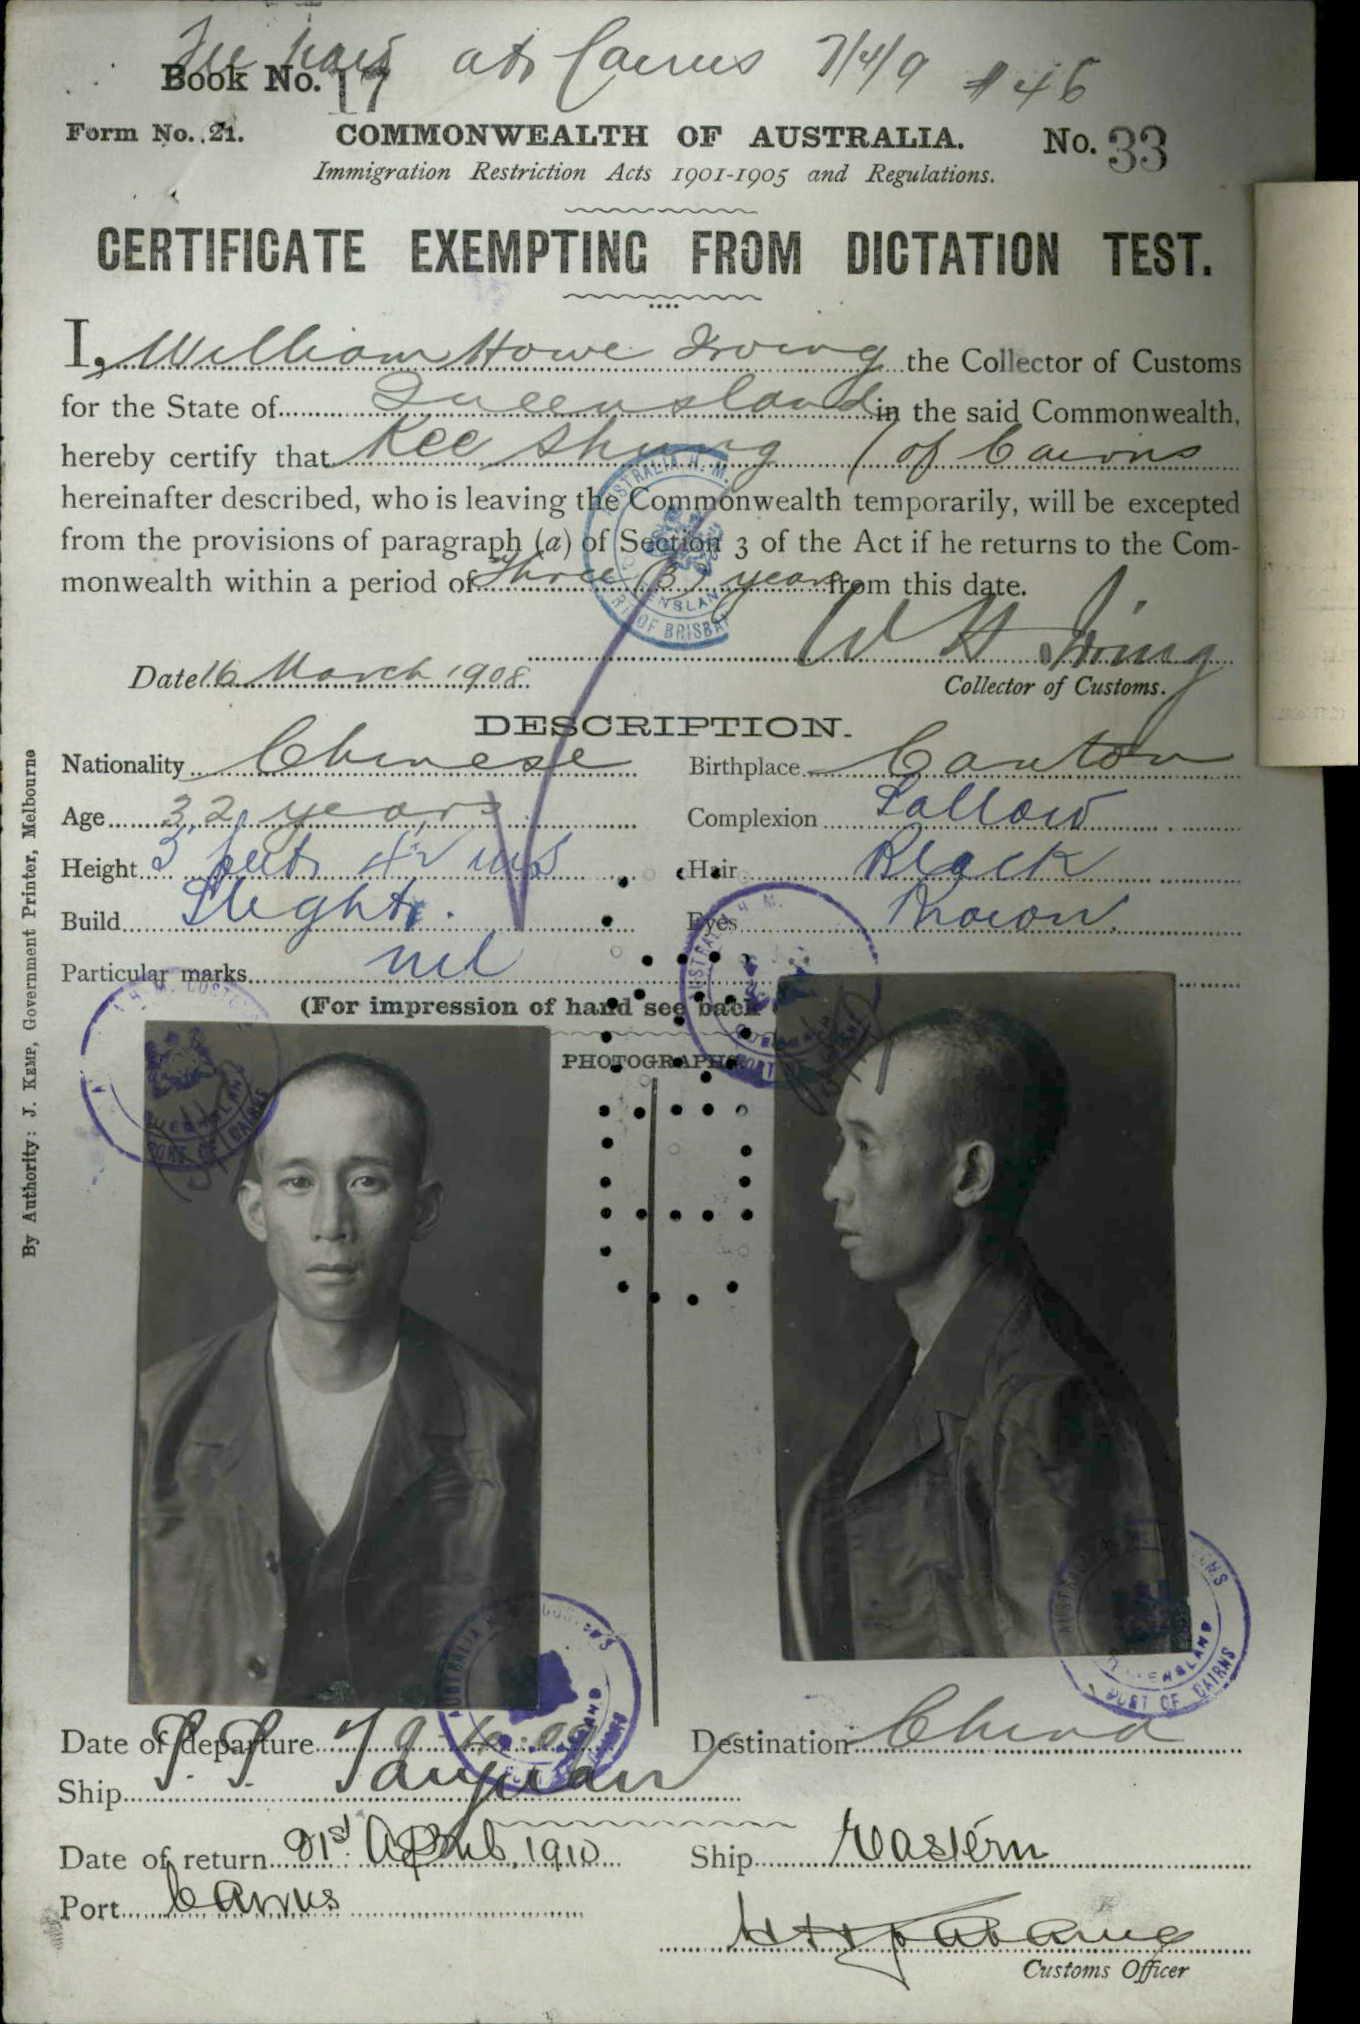 Fee paid at Cairns 7/4/9 #46
Book No. 17
Form No. 21. COMMONWEALTH OF AUSTRALIA. No. 33
Immigration Restriction Acts 1901-1905 and Regulations.
CERTIFICATE EXEMPTING FROM DICTATION TEST.
I, William Howe Irving the Collector of Customs
for the State of Queensland in the said Commonwealth,
hereby certify that Kee Shung (of Cairns
hereinafter described, who is leaving the Commonwealth temporarily, will be excepted
from the provisions of paragraph (a) of Section 3 of the Act if he returns to the Com-
monwealth within a period of three (3) years from this date.
W H Irving
Date 16 March 1908. Collector of Customs.
DESCRIPTION.
Nationality Chinese Birthplace Canton
Age 32 years Complexion Sallow
Height 5 feet 4½ ins Hair Black
Build Slight. Eyes Brown.
Particular marks nil
(For impression of hand see back
PHOTOGRAPHS
By Authority: J. KEMP, Government Printer, Melbourne
PORT OF CAIRNS
QUEENSLAND
Date of departure Destination China
Ship S. S. Taiyuan
Date of return 21st April, 1910 Ship Eastern
Port Cairns
Customs Officer